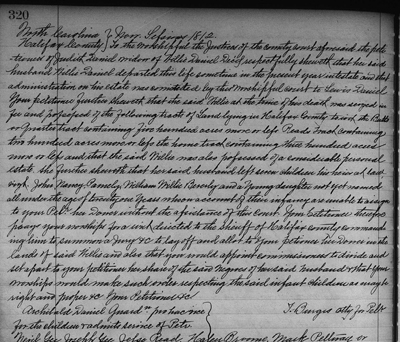 320
North Carolina } Nov. Sessions 1812.
Halifax County } To the worshipful the Justices of the county court aforesaid the peti
tioned of Judith Daniel widow of Willis Daniel Decd respectfully sheweth that her said
husband Willis Daniel departed this life sometime in the present year intestate and that
administration on his estate was committed by this worshipful court to Lewis Daniel
Your petitioner further sheweth that the said Willis at the time of his death was seized in
fee and possessed of the following tracts of Land lying in Halifax County to wit, the
or quarter tract containing five hundred acres more or less Reads Tract containing
two hundred acres more or less the home tract containing three hundred acres
more or less and that the said Willis was also possessed of a considerable personal
estate. She further sheweth that her said husband left seven children his heirs at law
viz John Nancy Pamely William Willis Beverly and a Young daughter not yet named
all under the age of twenty one Years who on account of their infancy are unable to assign
to your Petr her Dower without the assistance of this Court. Your petitioner therefore
prays your worships for a writ directed to the Sheriff of Halifax County command
ing him to summon a Jury &C to lay off and allot to Your petitioner her Dower in the
lands of said Willis and also that you would appoint commissioners to divide and
set apart to your petitioner her share of the said Negroes of her said husband & that Your
worships would make such orders respecting the said infant children as may be
right and proper &C Your Petitioner &C
Archibald Daniel Guardn pro hac vice } J. Burges atty for Petr
for the children & admits service of Petn
Joseph John Read, Mark Pettway or